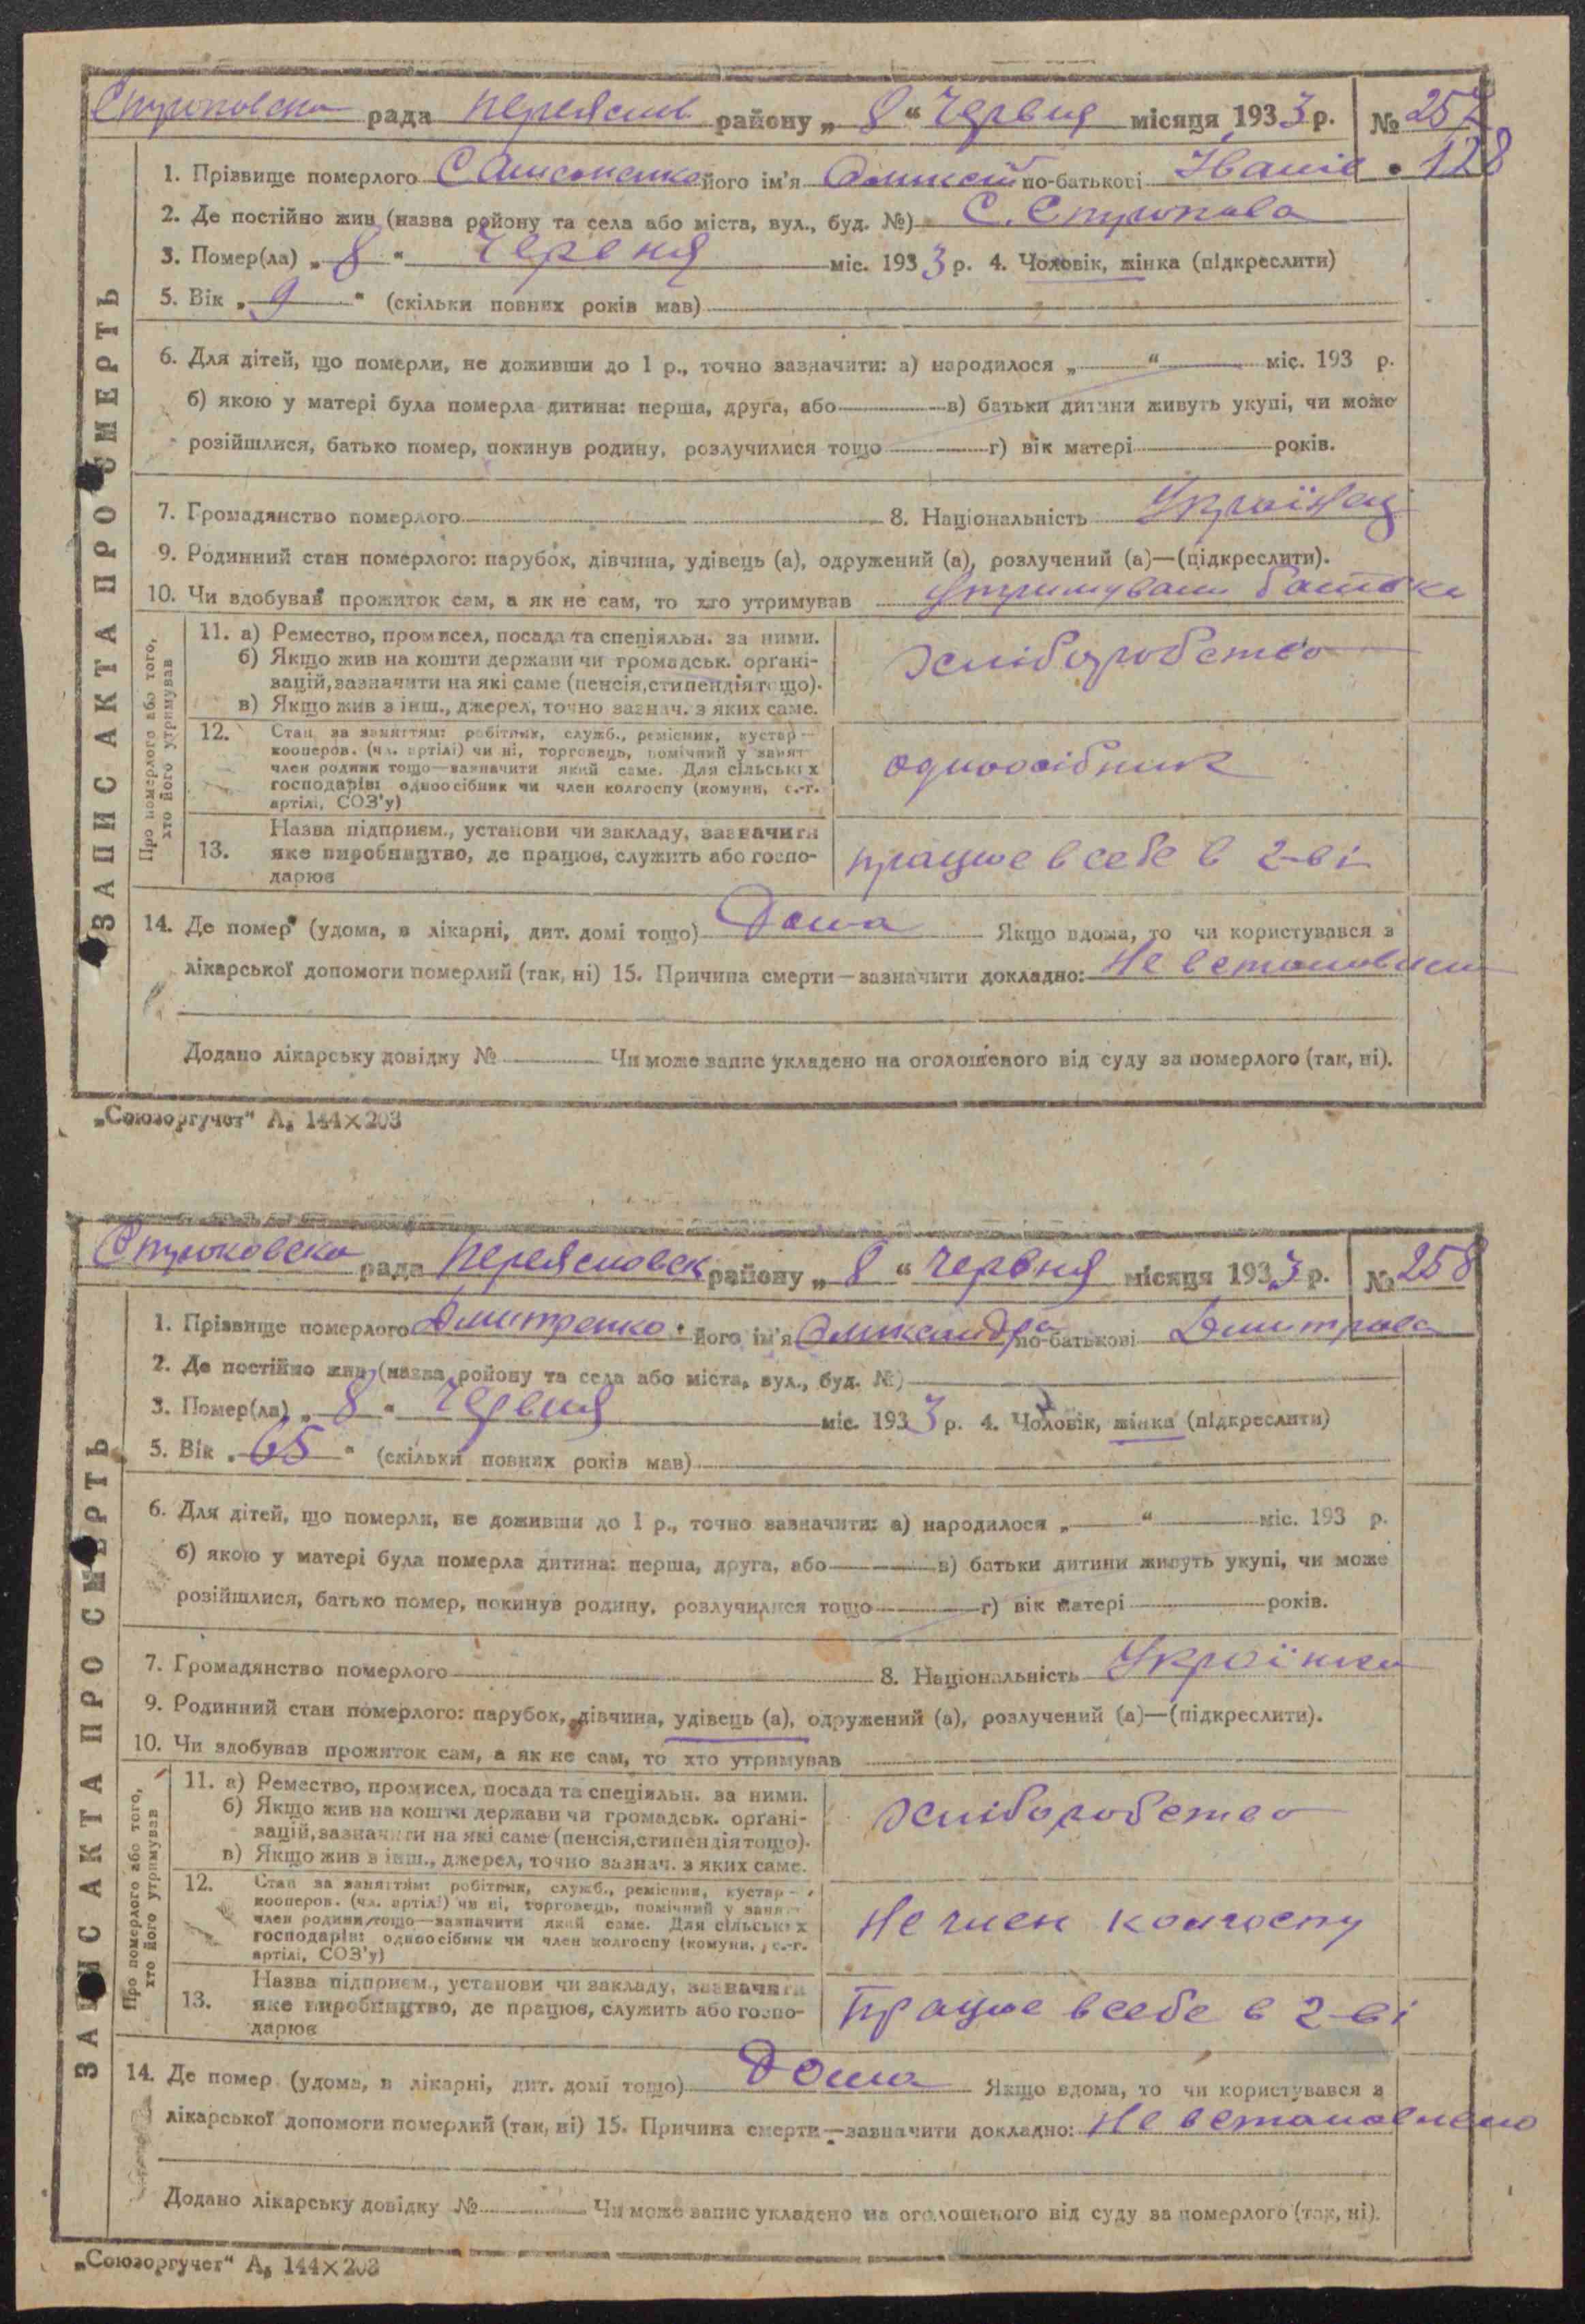 рада району „ 8 “ Червня місяця 1933 р. № 257
128
1. Прізвище померлого його ім'я по-батькові
2. Де постійно жив (назва району та села або міста, вул., буд. №) С.
3. Помер(ла) „ 8 “ Червня міс. 1933 р. 4. Чоловік, жінка (підкреслити)
5. Вік „ 9 “ (скільки повних років мав)
6. Для дітей, що померли, не доживши до 1 р., точно зазначити: а) народилося „ “ міс. 193 р.
б) якою у матері була померла дитина: перша, друга, або в) батьки дитини живуть укупі, чи може
розійшлися, батько помер, покинув родину, розлучилися тощо г) вік матері років.
7. Громадянство померлого 8. Національність Українец
9. Родинний стан померлого: парубок, дівчина, удівець (а), одружений (а), розлучений (а)—(підкреслити).
10. Чи здобував прожиток сам, а як не сам, то хто утримував
ЗАПИС АКТА ПРО СМЕРТЬ
Про померлого або того,
хто його утримував
11. а) Ремество, промисел, посада та спеціяльн. за ними.
б) Якщо жив на кошти держави чи громадськ. органі-
зацій, зазначити на які саме (пенсія, стипендія тощо).
в) Якщо жив з інш., джерел, точно зазнач. з яких саме.
хліборобство
12. Стан за заняттям: робітник, служб., ремісник, кустар—
кооперов. (чл. артілі) чи ні, торговець, помічний у занят
член родини тощо—зазначити який саме. Для сільських
господарів: одноосібник чи член колгоспу (комуни, с.-г.
артілі, СОЗ'у)
одноосібник
13. Назва підприєм., установи чи закладу, зазначити
яке виробництво, де працює, служить або госпо-
дарює
працює в себе в 2-ві
14. Де помер (удома, в лікарні, дит. домі тощо) Дома Якщо вдома, то чи користувався з
лікарської допомоги померлий (так, ні) 15. Причина смерти—зазначити докладно: Не встановлено
Додано лікарську довідку № Чи може запис укладено на оголошеного від суду за померлого (так, ні).
„Союзоргучет“ А₅ 144×203
рада району „ 8 “ Червня місяця 1933 р. № 258
1. Прізвище померлого Дмитренко його ім'я Олександра по-батькові Дмитрова
2. Де постійно жив (назва району та села або міста, вул., буд. №)
3. Помер(ла) „ 8 “ Червня міс. 1933 р. 4. Чоловік, жінка (підкреслити)
5. Вік „ 65 “ (скільки повних років мав)
6. Для дітей, що померли, не доживши до 1 р., точно зазначити: а) народилося „ “ міс. 193 р.
б) якою у матері була померла дитина: перша, друга, або в) батьки дитини живуть укупі, чи може
розійшлися, батько помер, покинув родину, розлучилися тощо г) вік матері років.
7. Громадянство померлого 8. Національність Українка
9. Родинний стан померлого: парубок, дівчина, удівець (а), одружений (а), розлучений (а)—(підкреслити).
10. Чи здобував прожиток сам, а як не сам, то хто утримував
ЗАПИС АКТА ПРО СМЕРТЬ
Про померлого або того,
хто його утримував
11. а) Ремество, промисел, посада та спеціяльн. за ними.
б) Якщо жив на кошти держави чи громадськ. органі-
зацій, зазначити на які саме (пенсія, стипендія тощо).
в) Якщо жив з інш., джерел, точно зазнач. з яких саме.
хліборобство
12. Стан за заняттям: робітник, служб., ремісник, кустар—
кооперов. (чл. артілі) чи ні, торговець, помічний у занят
член родини тощо—зазначити який саме. Для сільських
господарів: одноосібник чи член колгоспу (комуни, с.-г.
артілі, СОЗ'у)
Не член колгоспу
13. Назва підприєм., установи чи закладу, зазначити
яке виробництво, де працює, служить або госпо-
дарює
Працює в себе в 2-ві
14. Де помер (удома, в лікарні, дит. домі тощо) Дома Якщо вдома, то чи користувався з
лікарської допомоги померлий (так, ні) 15. Причина смерти—зазначити докладно: Не встановлено
Додано лікарську довідку № Чи може запис укладено на оголошеного від суду за померлого (так, ні).
„Союзоргучет“ А₅ 144×203